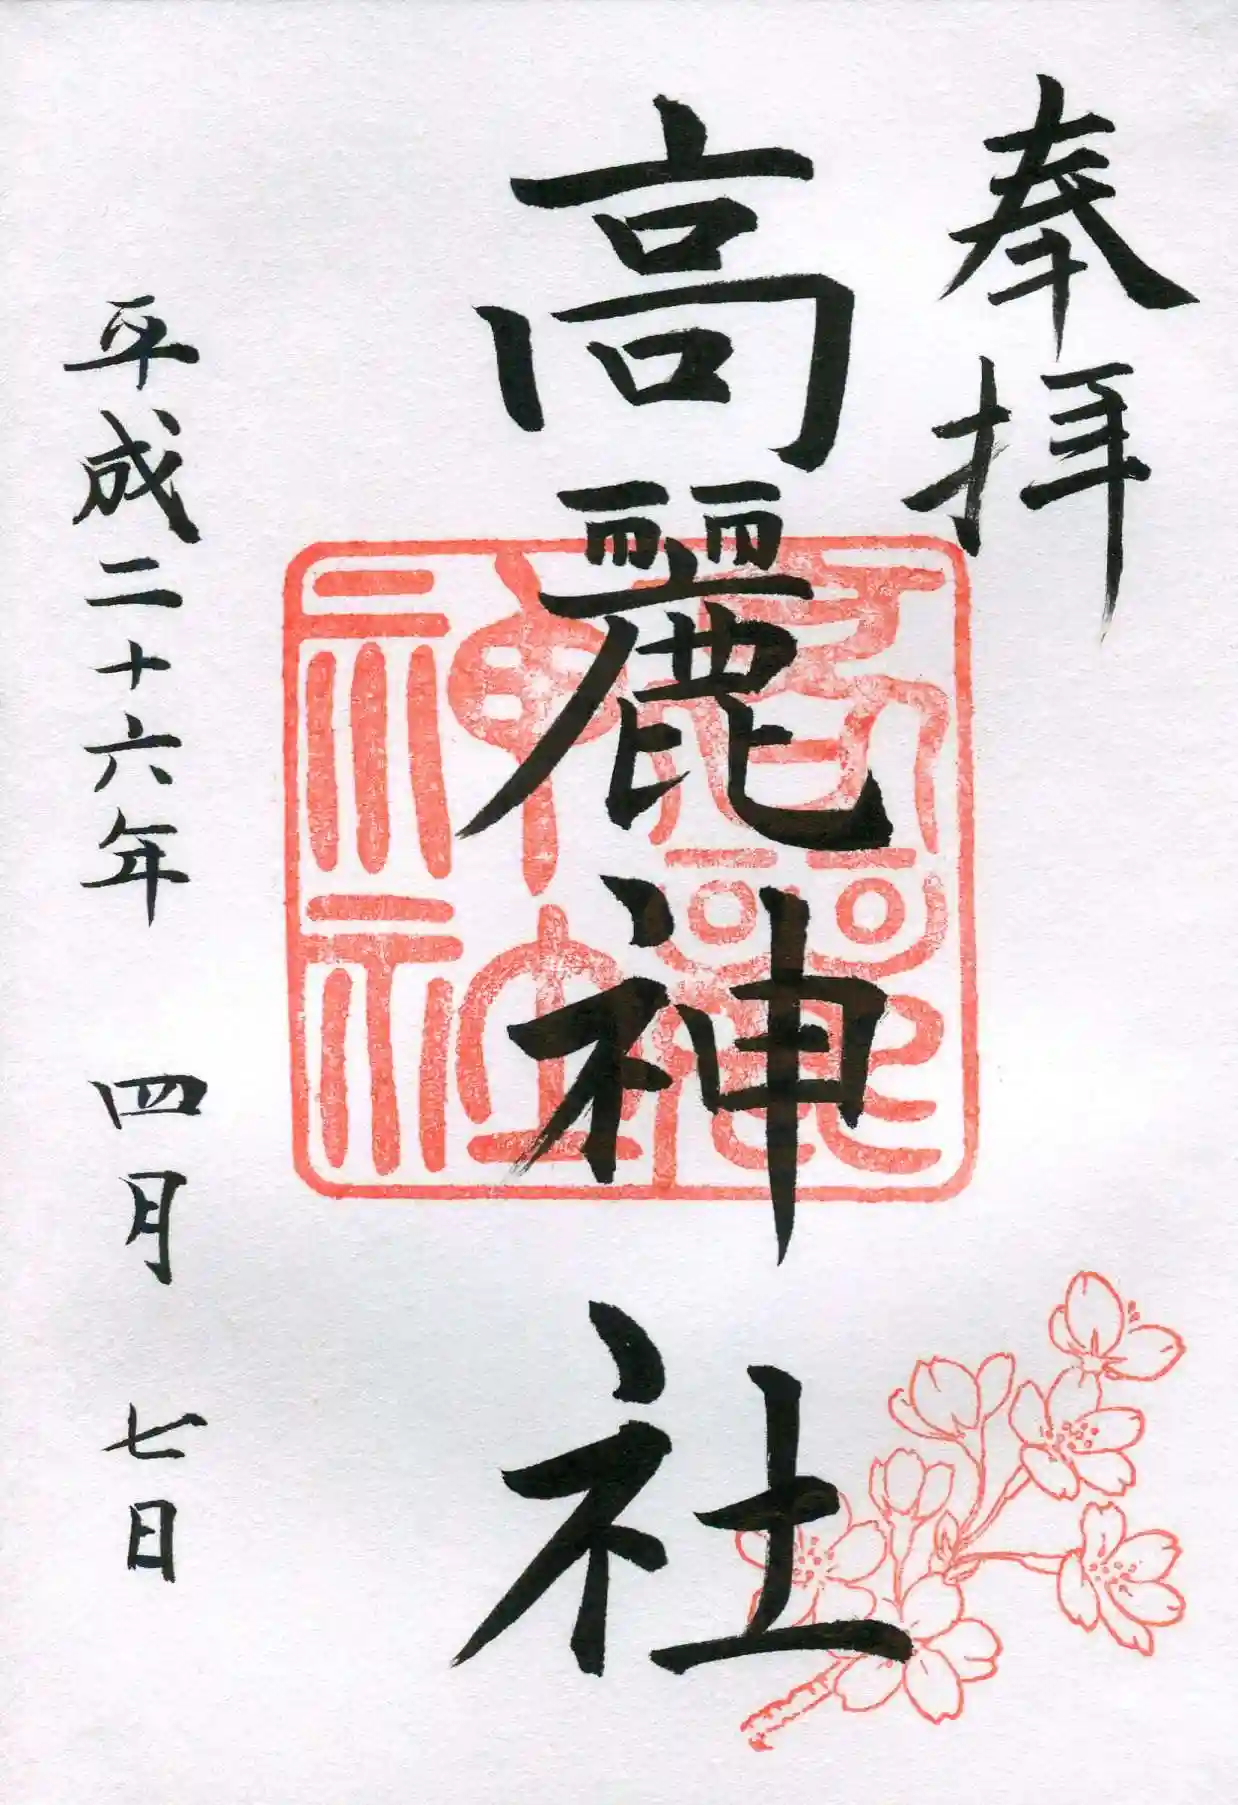 奉拝
高麗神社
高麗
神社
平成二十六年 四月 七日